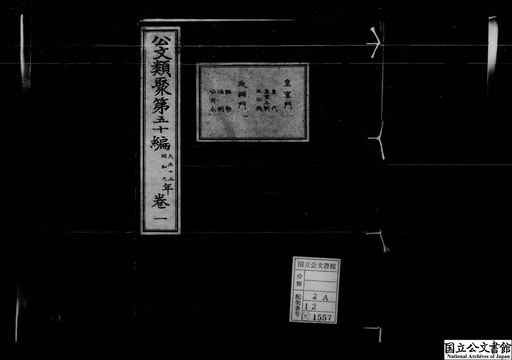 公文類聚第五十編 大正十五年 昭和元年 巻一
皇室門
政綱門一
国立公文書館
分類
配架番号
2A
12
1557
国立公文書館
National Archives of Japan